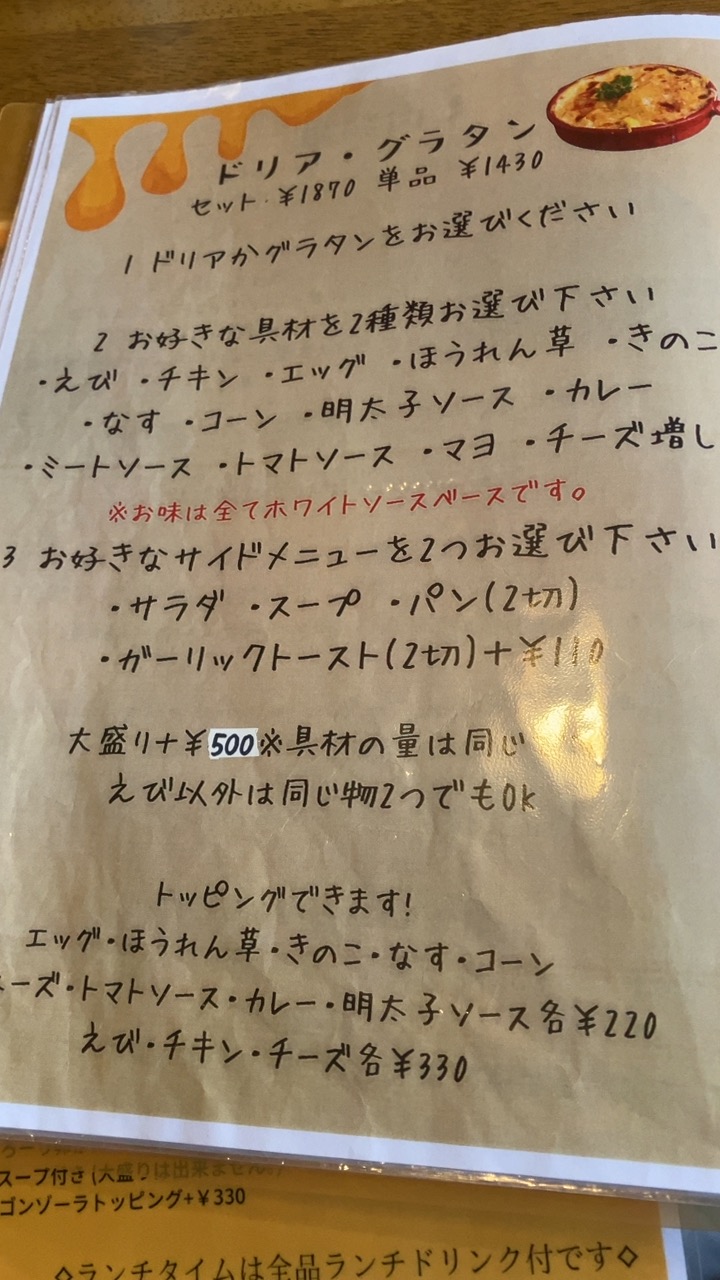 ドリア・グラタン
セット・¥1870 単品 ¥1430
1 ドリアかグラタンをお選びください
2 お好きな具材を2種類お選び下さい
・えび ・チキン ・エッグ ・ほうれん草 ・きのこ
・なす ・コーン ・明太子ソース ・カレー
・ミートソース ・トマトソース ・マヨ ・チーズ増し
※お味は全てホワイトソースベースです。
3 お好きなサイドメニューを2つお選び下さい
・サラダ ・スープ ・パン(2切)
・ガーリックトースト(2切)+¥110
大盛り+¥500※具材の量は同じ
えび以外は同じ物2つでもOK
トッピングできます!
エッグ・ほうれん草・きのこ・なす・コーン
ーズ・トマトソース・カレー・明太子ソース各¥220
えび・チキン・チーズ各¥330
スープ付き(大盛りは出来ません)
ゴンゾーラトッピング+¥330
◇ランチタイムは全品ランチドリンク付です◇